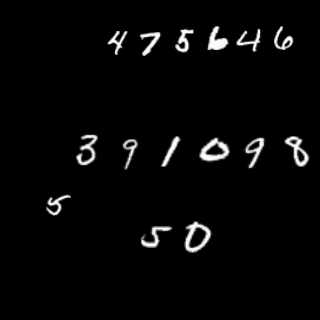 475646
391098
5
50